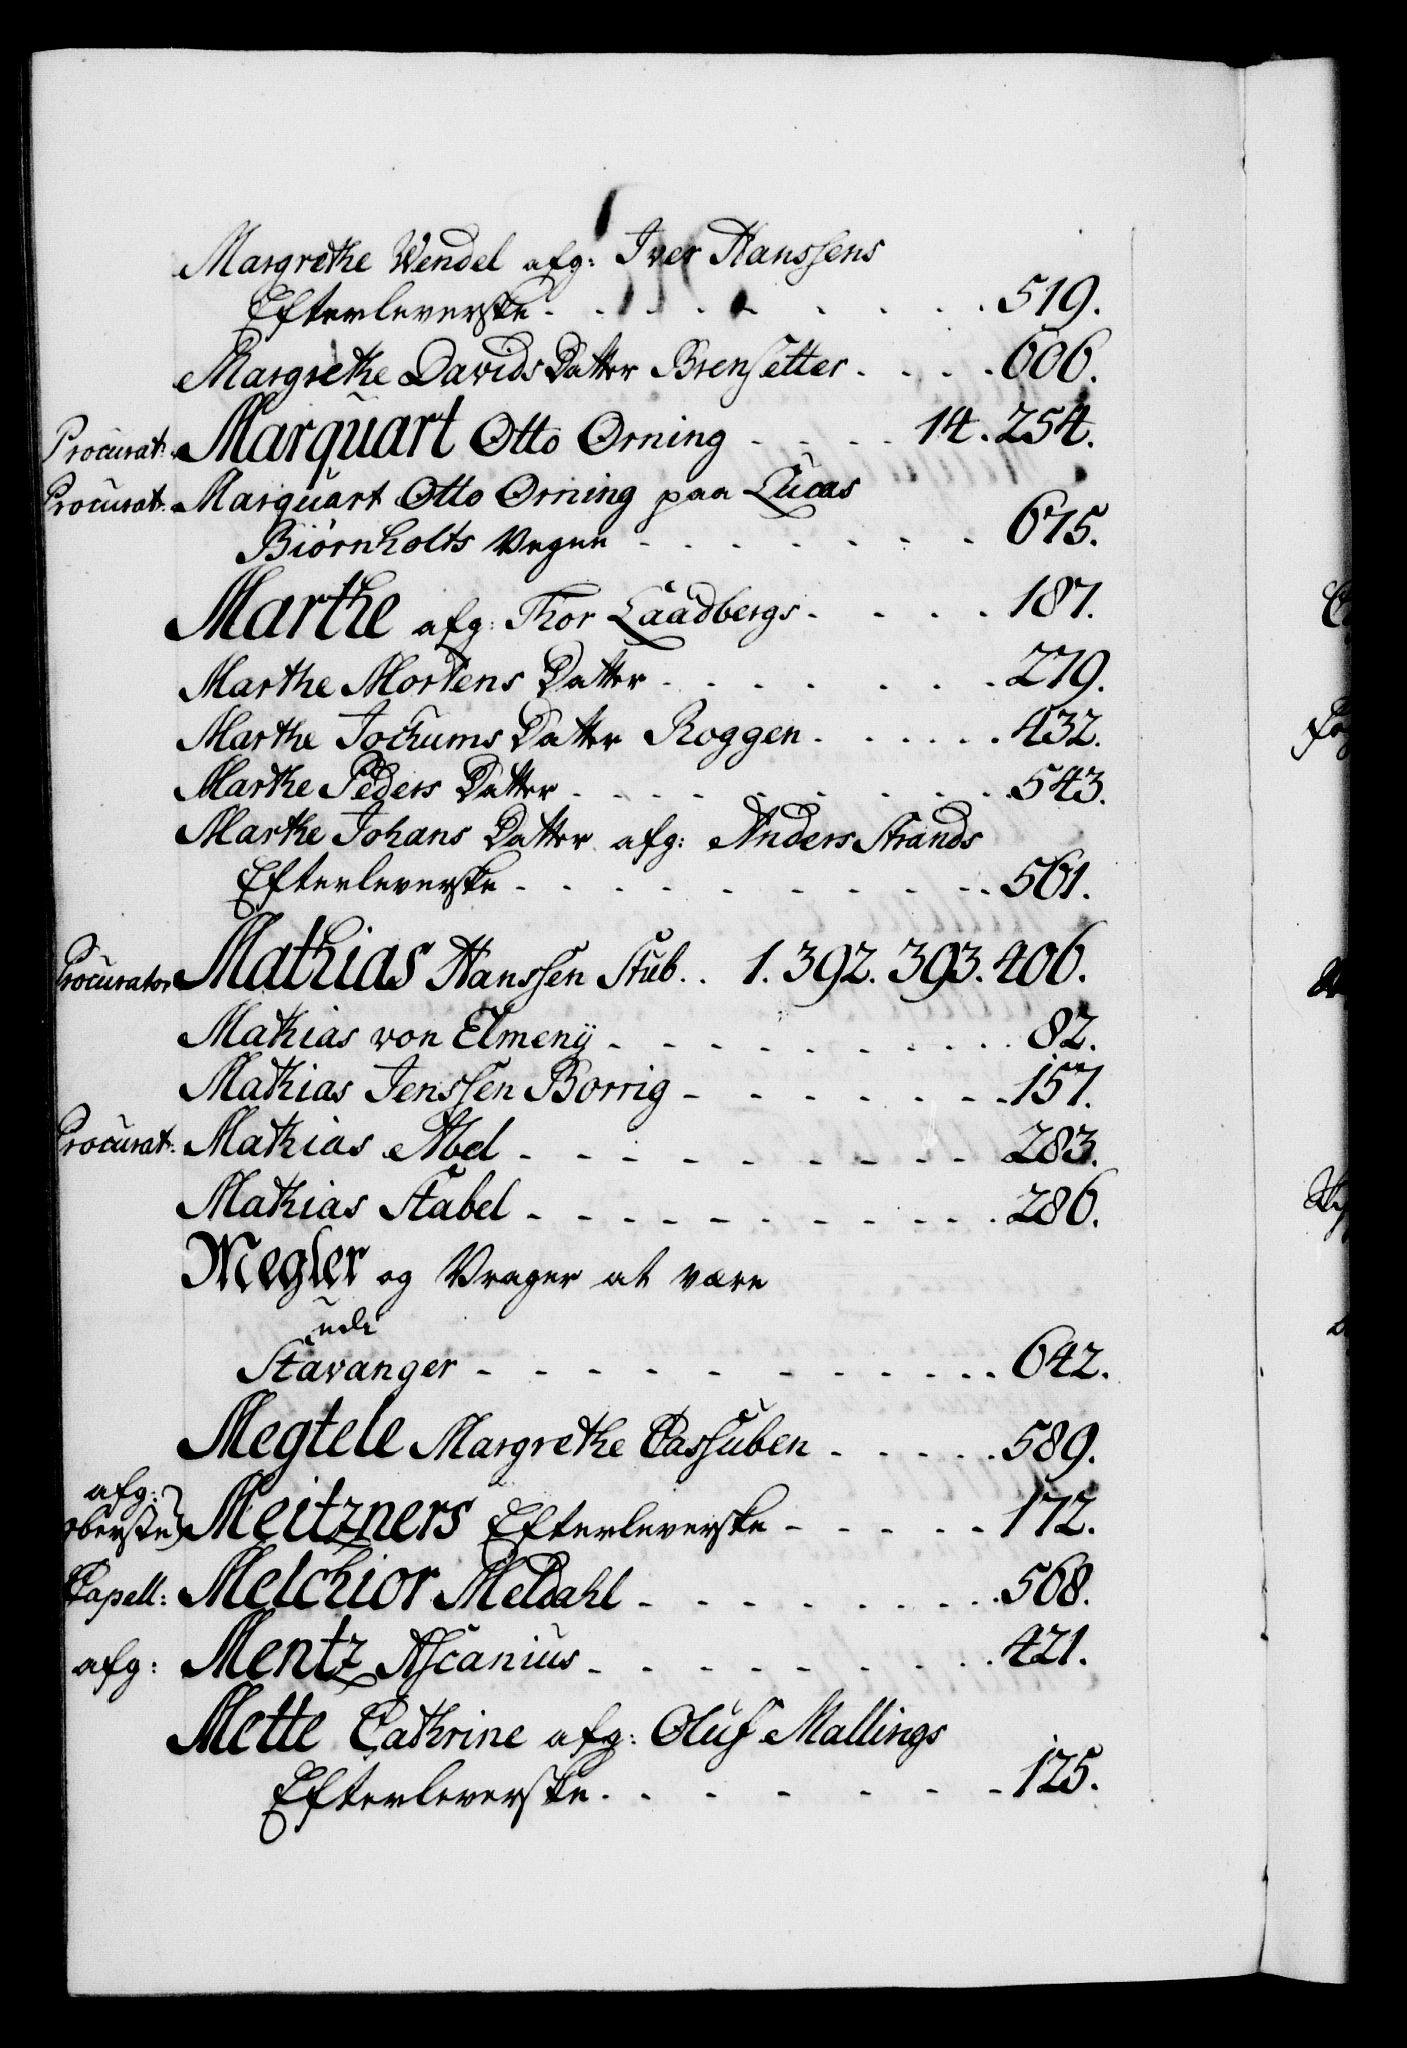 Margrethe Wendel afg: Iver Hanssens
Efterleverske . . . . . . . . 519.
Margrethe Davids Datter Brensetter . . . . 606.
Procurat: Marquart Otto Orning - - - - 14. 254.
Procurat: Marquart Otto Orning paa Lucas
Biørnholts Vegne - - - - - - - 675.
Marthe afg: Thor Laadbergs . . . . 187.
Marthe Mortens Datter . . . . . . . 279.
Marthe Jochums Datter Roggen . . . . . . 432.
Marthe Peders Datter . . . . . . . . . 543.
Marthe Johans Datter afg: Anders Strands
Efterleverske . . . . . . . . . . 561.
Procurator Mathias Hanssen Stub . . 1. 392. 393. 406.
Mathias von Elmenÿ . . . . . . . . . 82.
Mathias Jenssen Borrig - - - - - - - 157.
Procurat: Mathias Abel - - - - - - - - - 283.
Mathias Stabel - - - - - - - - - - 286.
Megler og Vrager at være
udi
Stavanger - - - - - - - - - - 642.
Megtele Margrethe Cassuben . . . . . 589.
afg:
Oberste Meitzners Efterleverske - - - - - 172.
Capell: Melchior Meldahl - - - - - - - - 568.
afg: Mentz Ascanius - - - - - - - - 421.
Mette Cathrine afg: Oluf Mallings
Efterleverske . . - - - - - 125.